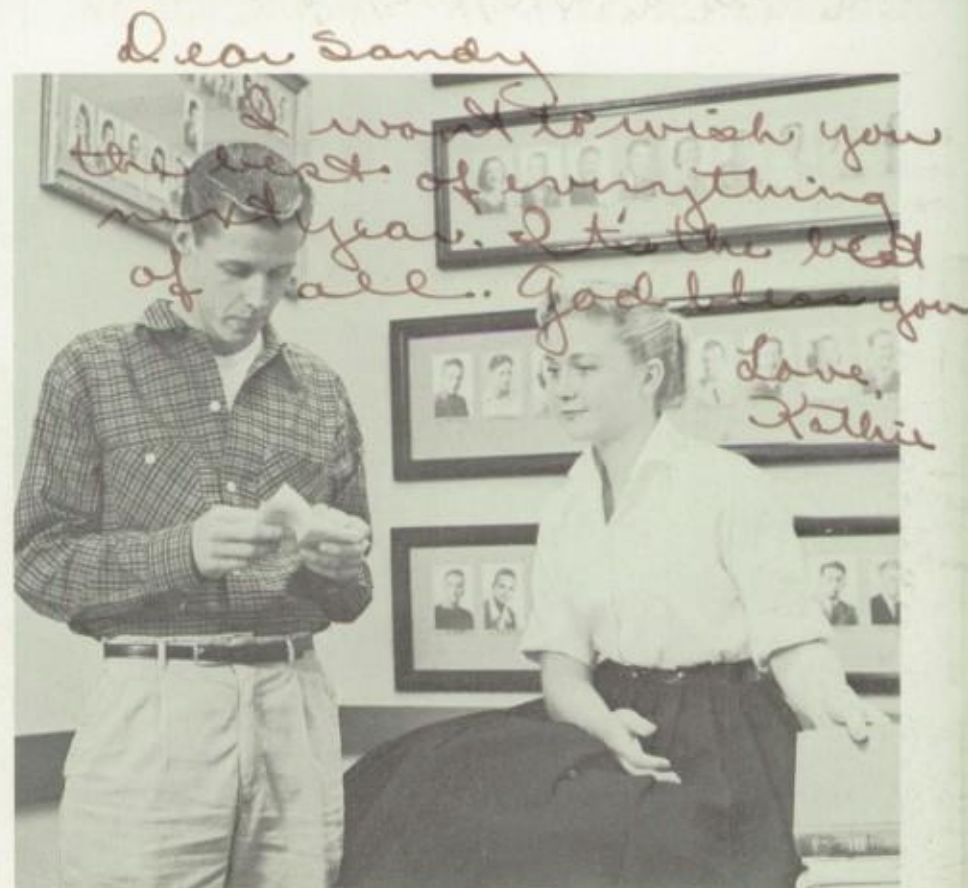 Dear Sandy
I want to wish you
the best of everything
next year. It's the best
of all. God bless you
Love,
Kathie